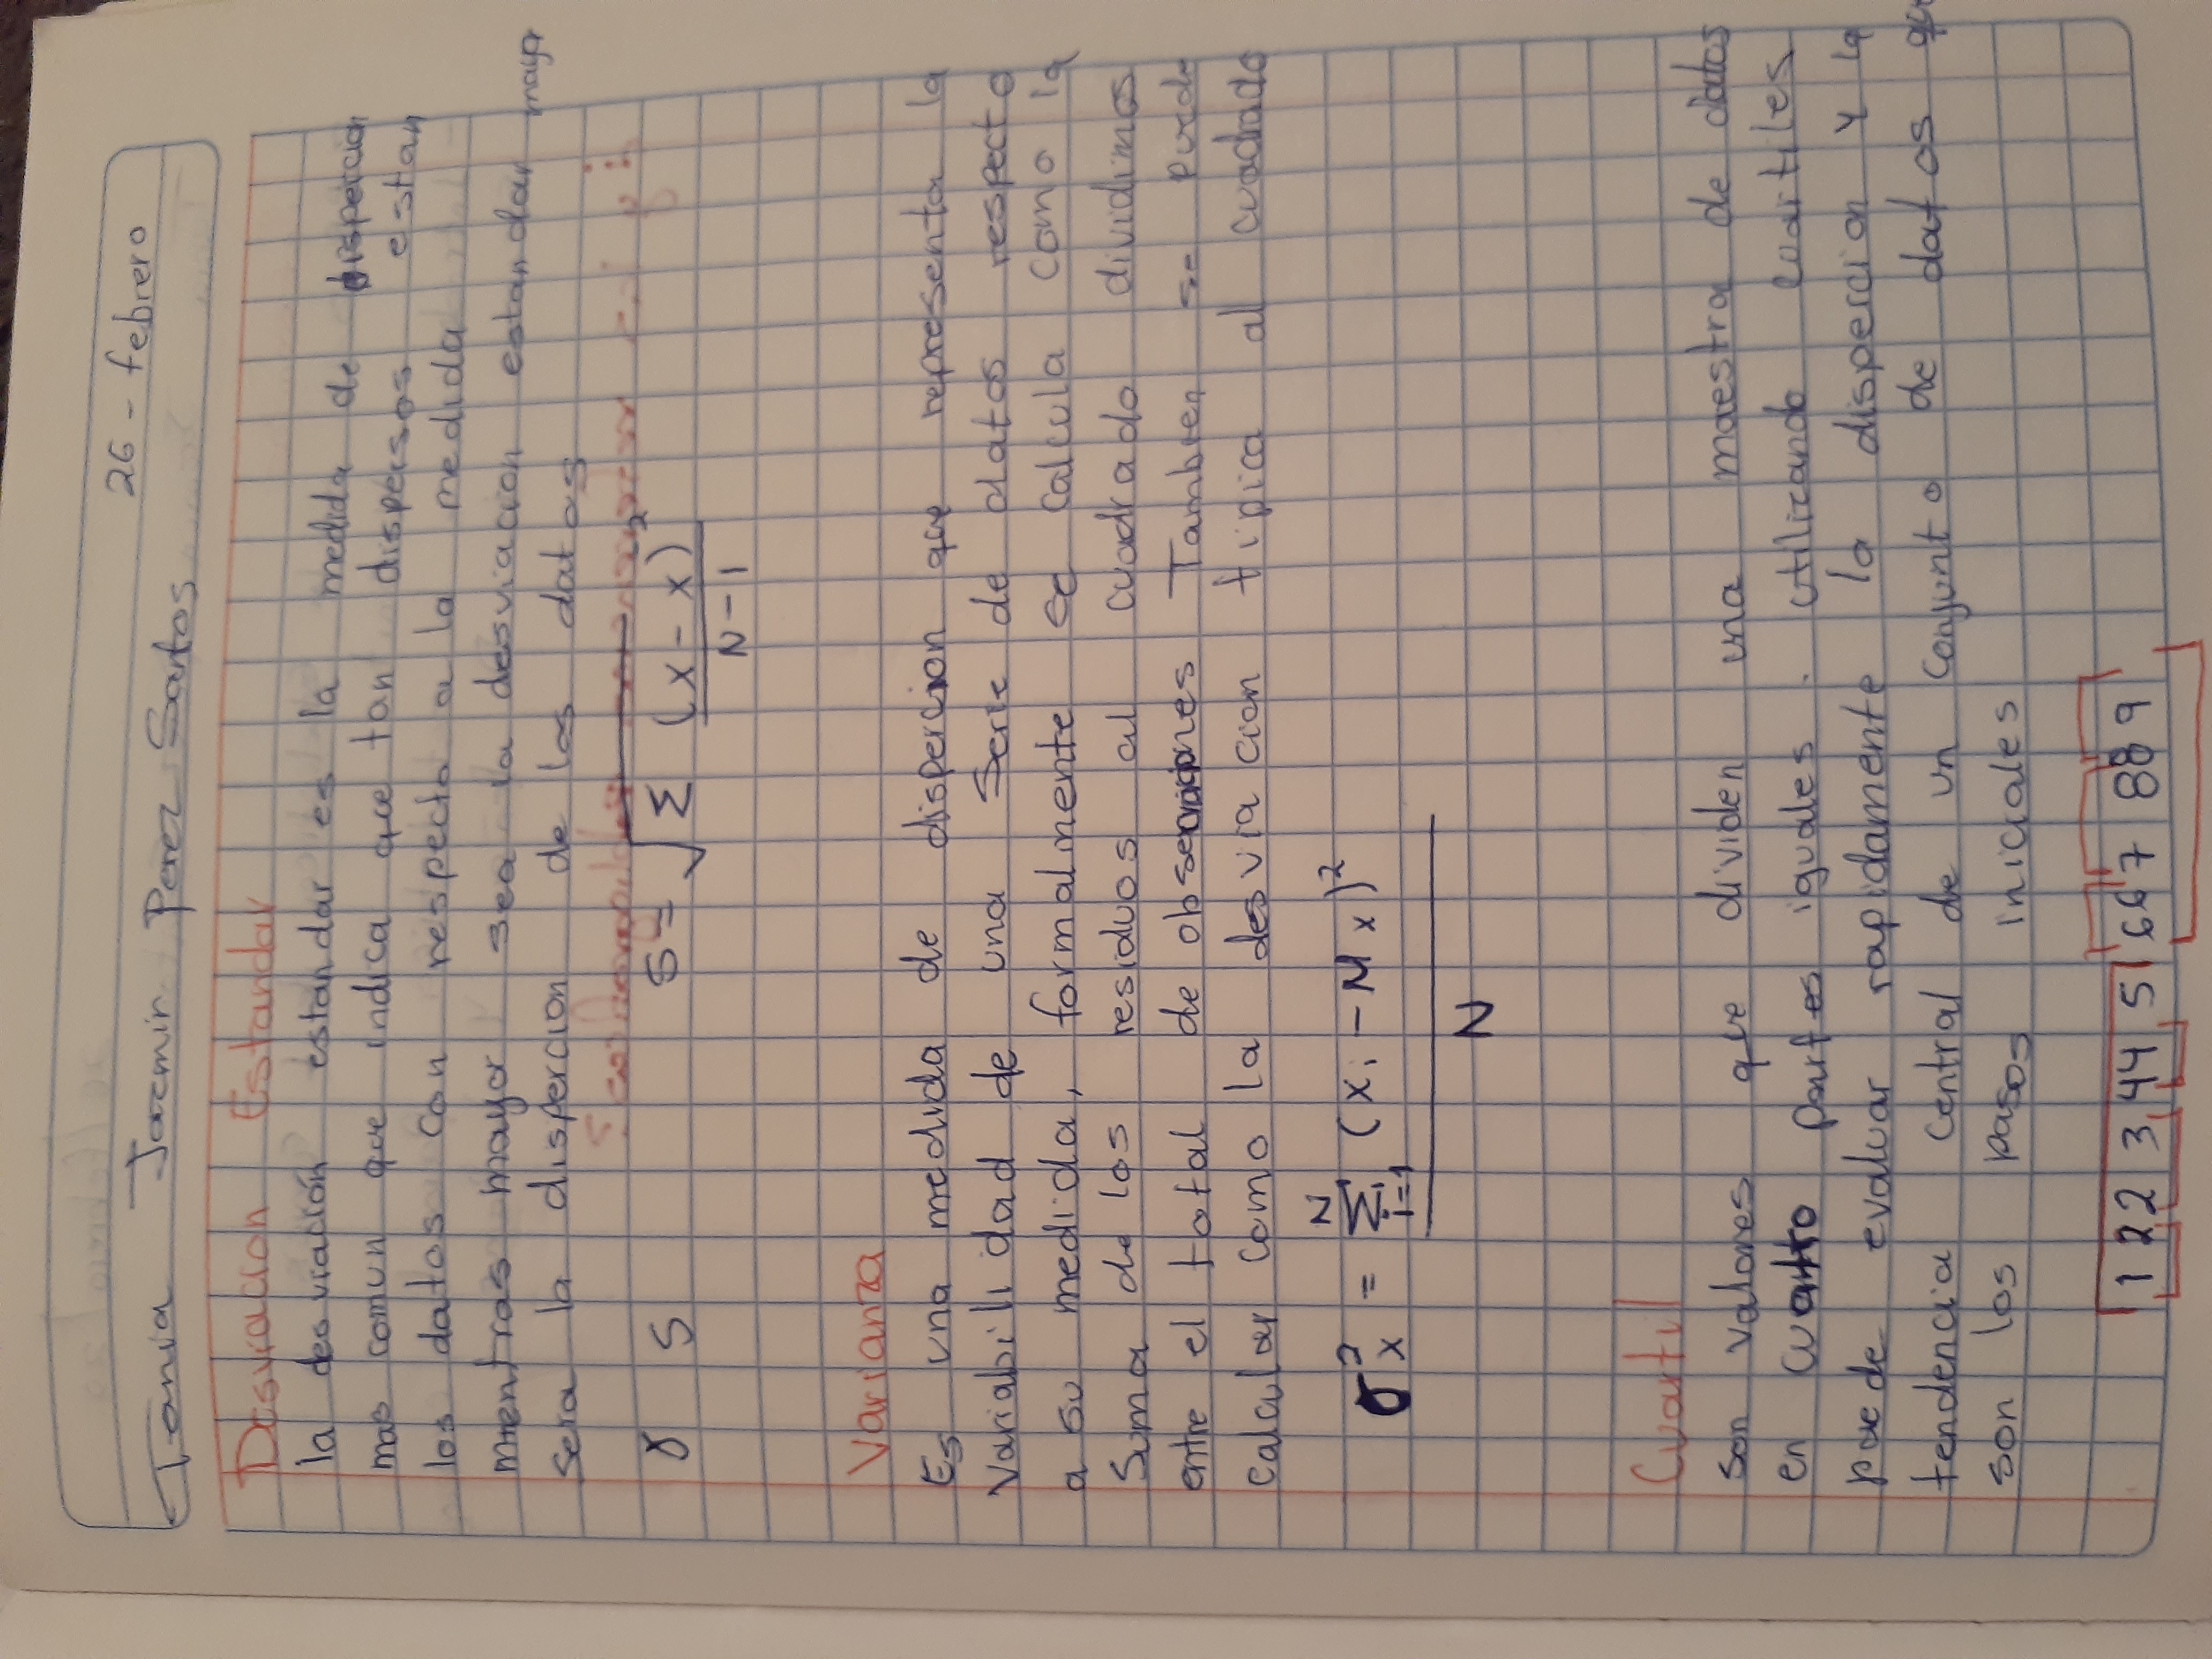 26 - febrero
Tania Jazmin Perez Santos
Desviacion Estandar
la desviación estandar es la medida de dispercion
mas comun que indica que tan dispersos estan
los datos con respecto a la medida
mientras mayor sea la desviacion estandar mayor
sera la dispercion de los datos
σ S S = √ Σ (x - x)²
N - 1
Varianza
Es una medida de dispercion que representa la
Variabilidad de una Serie de datos respecto
a su medida, formalmente se calcula como la
Suma de los residuos al cuadrado dividimos
entre el total de observaciones Tambien se puede
calcular como la desviacion tipica al cuadrado
σ²x = N Σ i=1 (xi - Mx)²
N
Cuartil
son valores que dividen una maestra de datos
en cuatro partes iguales. utilizando cuartiles
puede evaluar rapidamente la dispercion y la
tendencia central de un conjunto de datos que
son los pasos iniciales
1 2 2 3 4 4 5 6 6 7 8 8 9